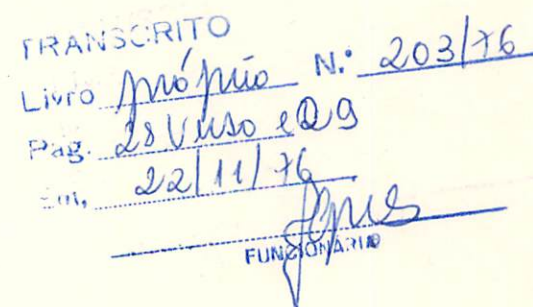 TRANSCRITO
Livro próprio N.º 203/76
Pag. 28 Verso e 29
Em, 22/11/76
FUNCIONÁRIO